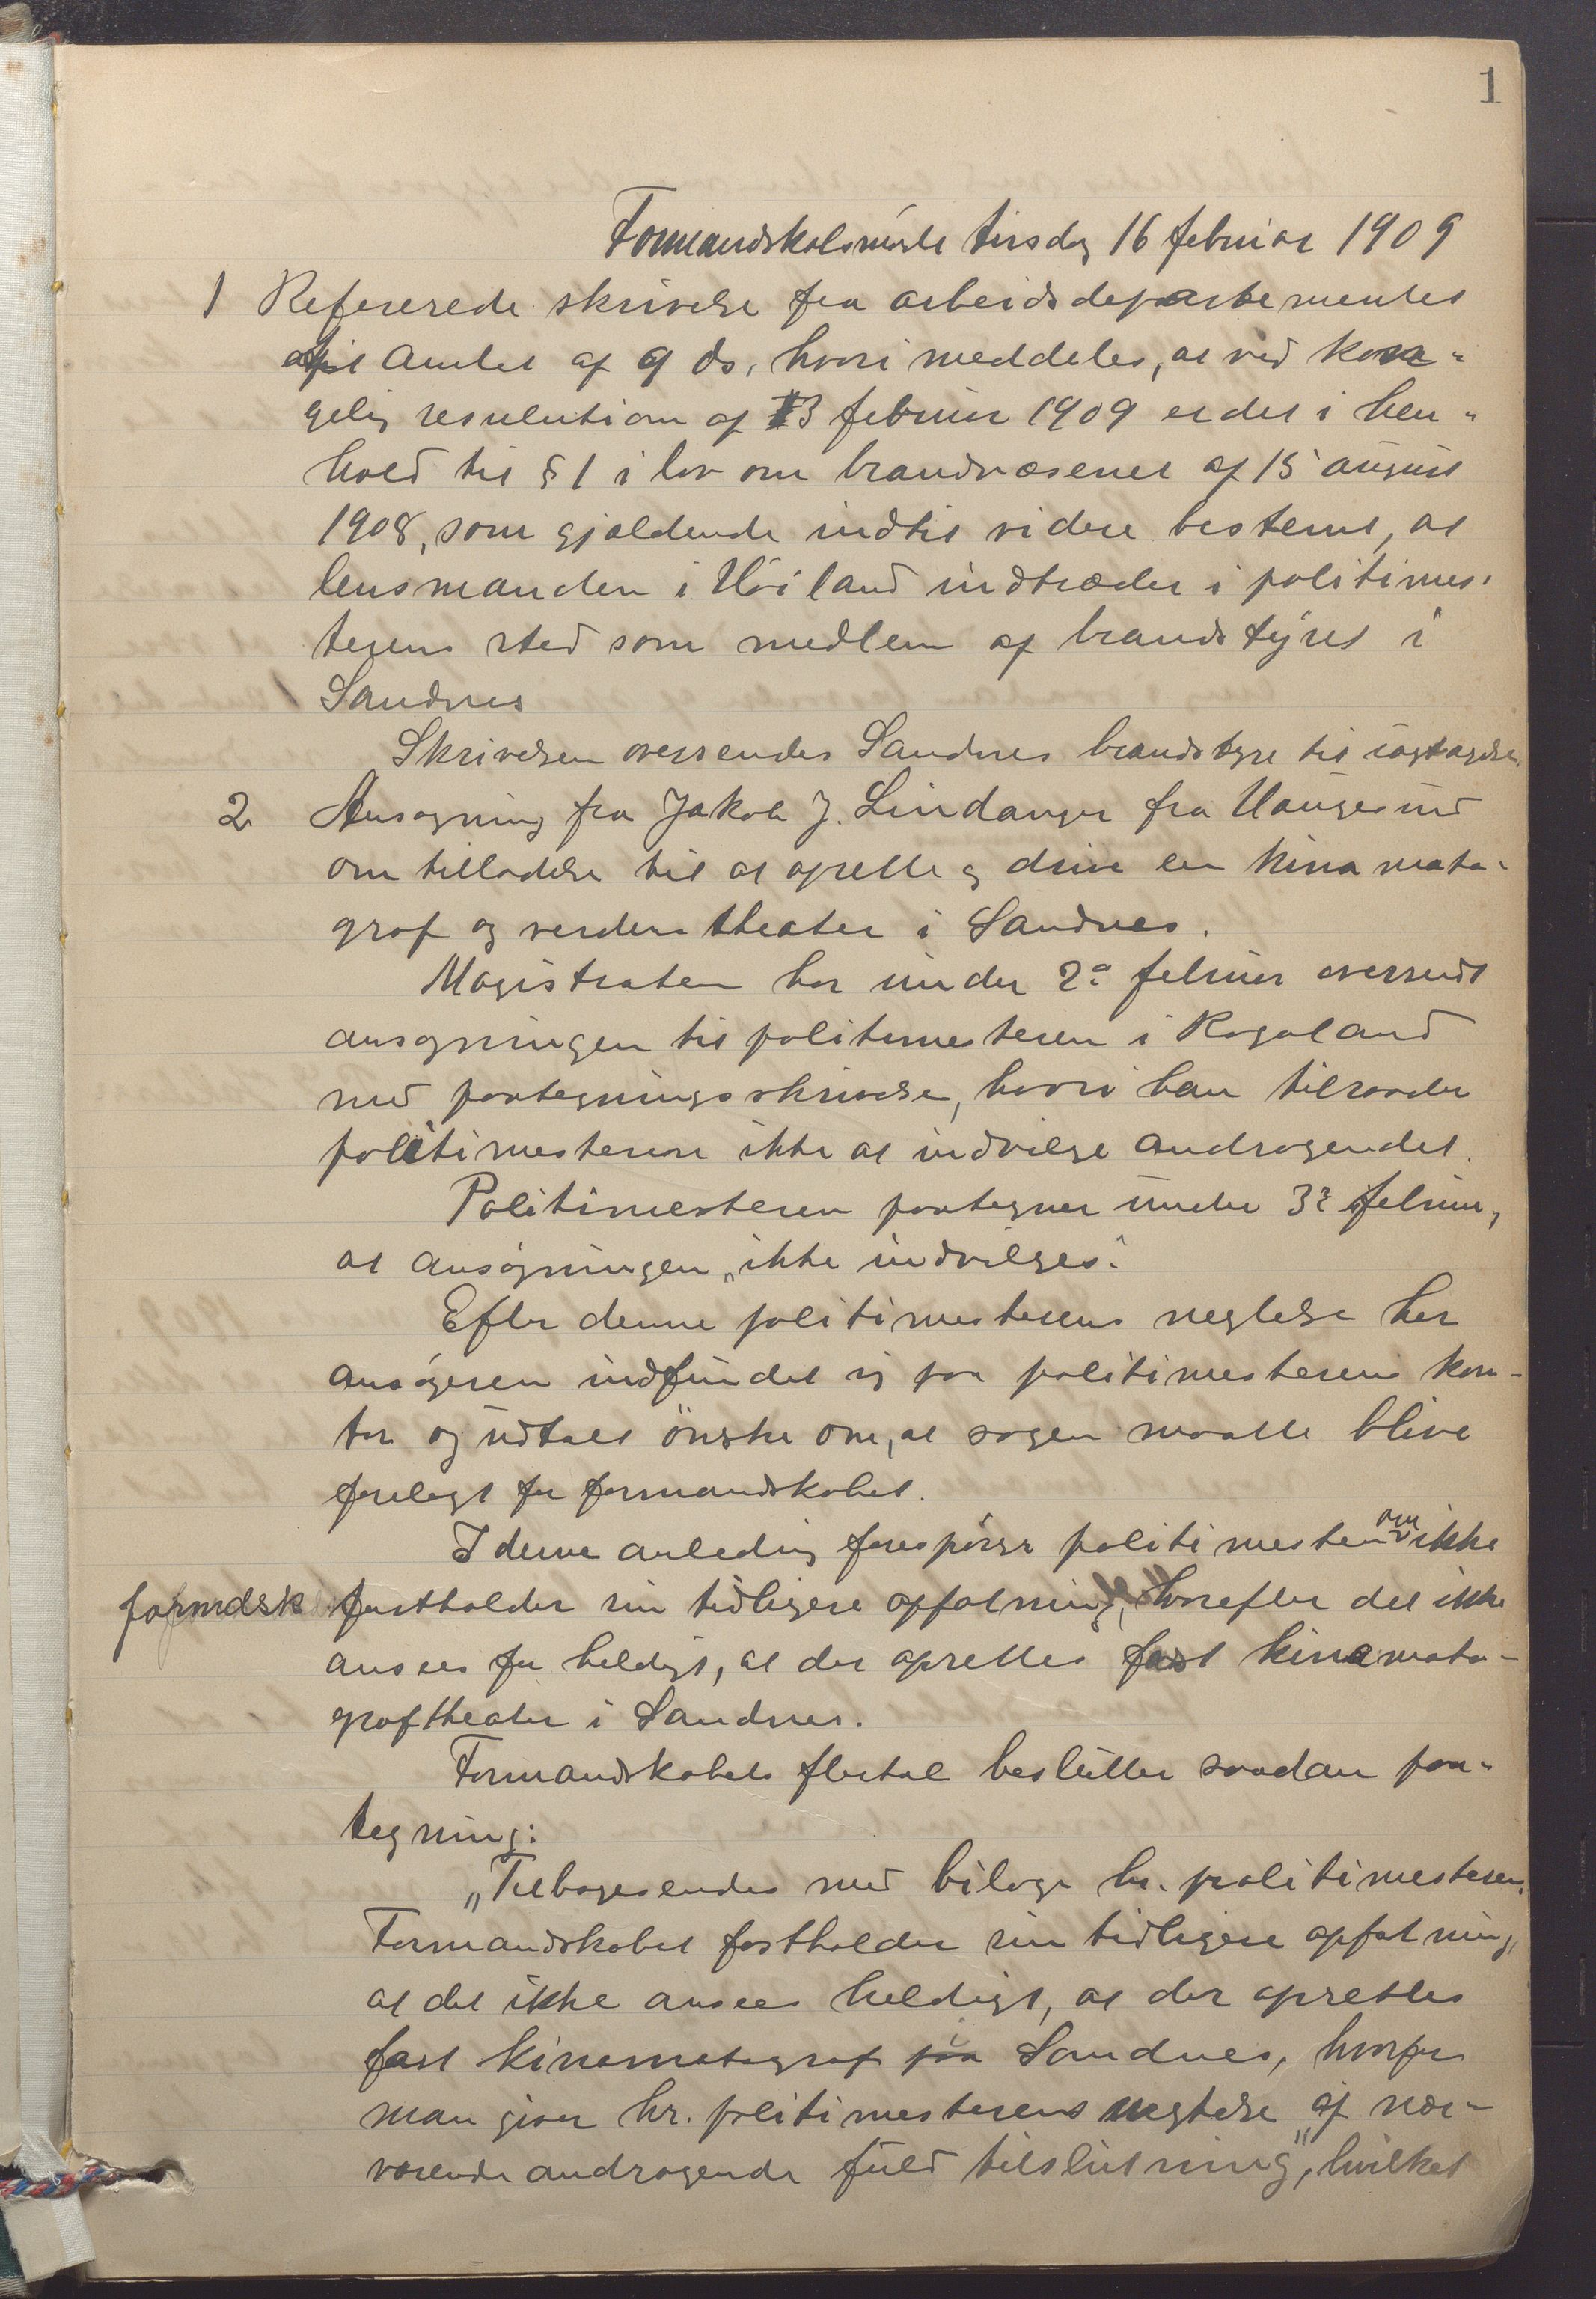 1
Formandskabsmøde tirsdag 16 februar 1909
1 Refererede skrivelse fra arbeidsdepartementet
til Amtet af 9 ds, hvori meddeles, at ved kon-
gelig resolution af 3 februar 1909 er det i hen-
hold til § 1 i lov om brandvæsenet af 15 august
1908, som gjældende indtil videre bestemt, at
lensmanden i Höiland indtræder i politimes-
terens sted som medlem af brandstyret i
Sandnes
Skrivelsen oversendes Sandnes brandstyre til iagttagelse.
2 Ansøgning fra Jakob J. Lindanger fra Haugesund
om tilladelse til at oprette og drive en kinemato-
graf og verdenstheater i Sandnes.
Magistraten har under 2o februar oversendt
ansøgningen til politimesteren i Rogaland
med paategningsskrivelse, hvori han tilraader
politimesteren ikke at indvilge andragendet.
Politimesteren paategner under 3 februar,
at ansøgningen „ikke indvilges".
Efter denne politimesterens negtelse har
ansøgeren indfundet sig paa politimesterens kon-
tor og udtalt ønske om, at sagen maatte blive
forelagt for formandskabet.
I denne anledning forespörger politimesteren om ikke
formdsk fastholder sin tidligere opfatning, hvorefter det ikke
ansees for heldigt, at der oprettes fast kinemato-
graftheater i Sandnes.
Formandskabets flertal beslutter saadan paa-
tegning:
„Tilbagesendes med bilage hr. politimesteren.
Formandskabet fastholder sin tidligere opfatning,
at det ikke ansees heldigt, at der oprettes
fast kinematograf i Sandnes, hvorfor
man giver hr. politimesterens negtelse af nær-
værende andragende fuld tilslutning", hvilket